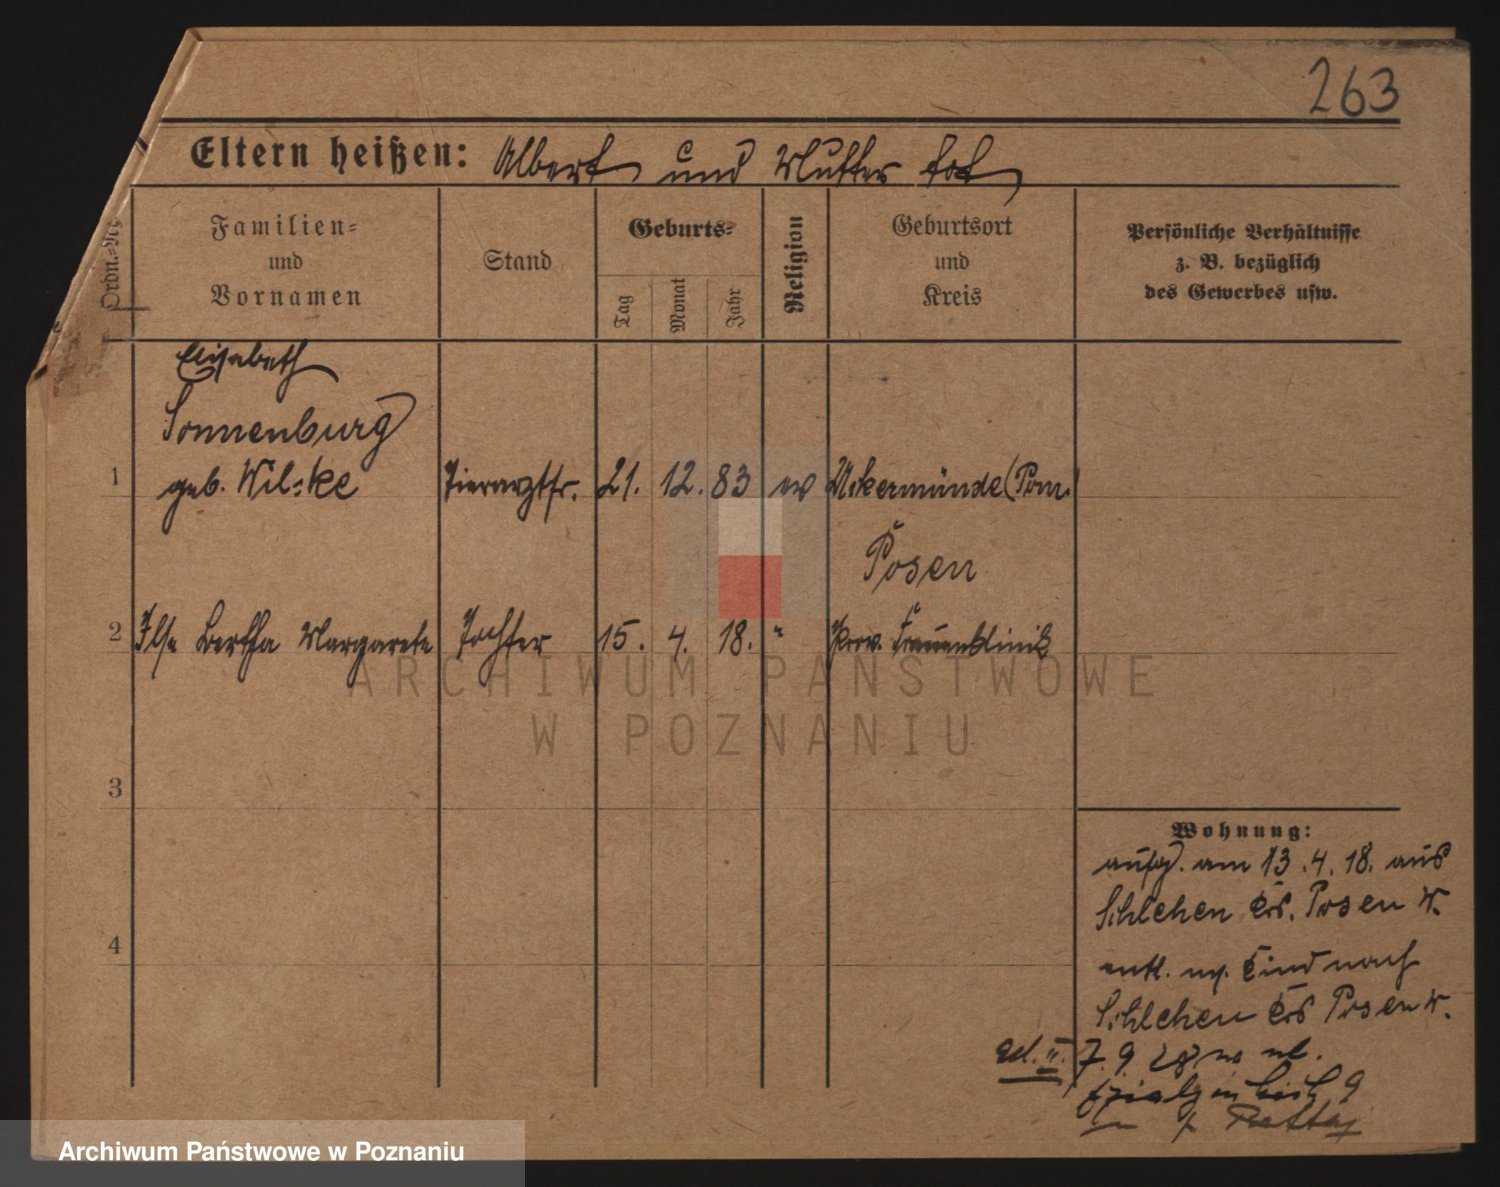 263
Eltern heißen: Albert und Mutter tot
Ordn.-Nr.
Familien-
und
Vornamen
Stand
Geburts-
Tag
Monat
Jahr
Religion
Geburtsort
und
Kreis
Persönliche Verhältnisse
z. B. bezüglich
des Gewerbes usw.
Elisabeth
Sonnenburg
1 geb. Wilske Tierarztfr. 21. 12. 83 ev Uckermünde (Pom.)
Posen
2 Ilse Bertha Margarete Tochter 15. 4. 18. " Prov. Frauenklinik
ARCHIWUM PAŃSTWOWE
W POZNANIU
3
4
Wohnung:
aufg. am 13.4.18. aus
Schlehen Krs. Posen W.
entl. m. Kind nach
Schlehen Krs Posen W.
7. 9
Archiwum Państwowe w Poznaniu